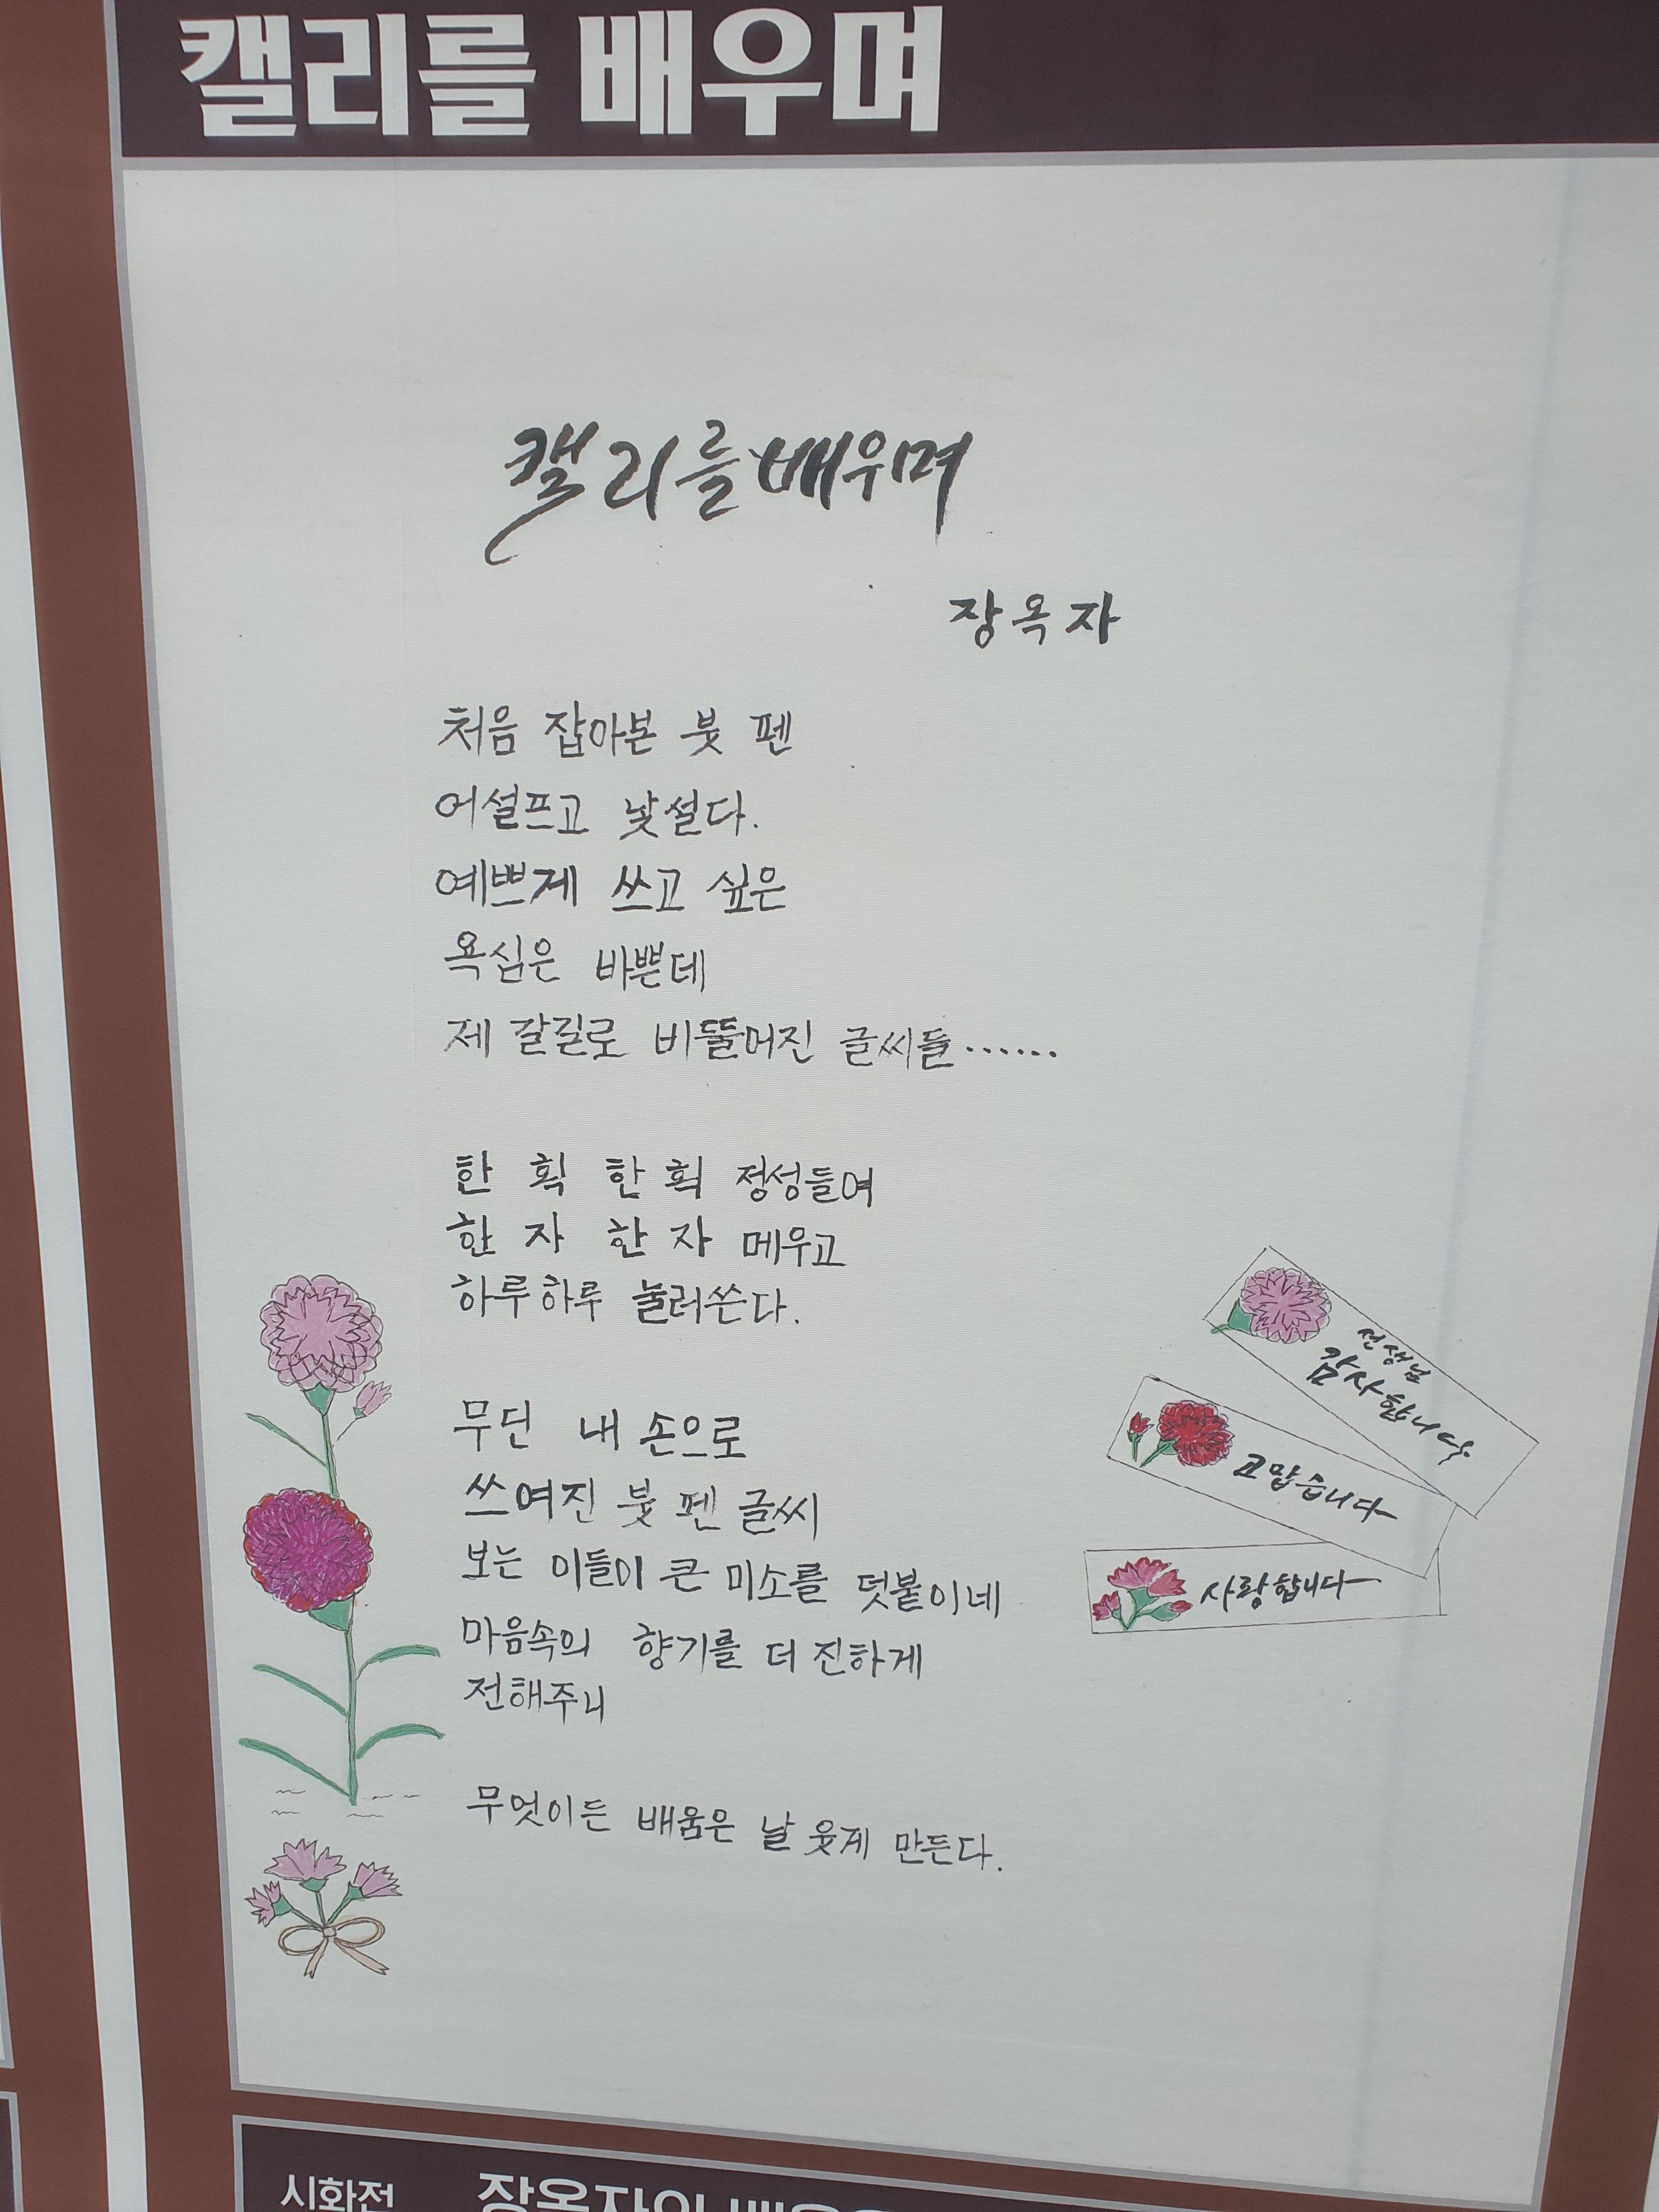 캘리를 배우며
캘리를 배우며
장옥자
처음 잡아본 붓 펜
어설프고 낯설다.
예쁘게 쓰고 싶은
욕심은 바쁜데
제 갈길로 비뚤어진 글씨들......
한 획 한 획 정성들여
한 자 한 자 메우고
하루하루 눌러쓴다.
무딘 내 손으로
쓰여진 붓 펜 글씨
보는 이들이 큰 미소를 덧붙이네
마음속의 향기를 더 진하게
전해주니
무엇이든 배움은 날 웃게 만든다.
선생님
감사합니다
고맙습니다
사랑합니다
시화전 장옥자의